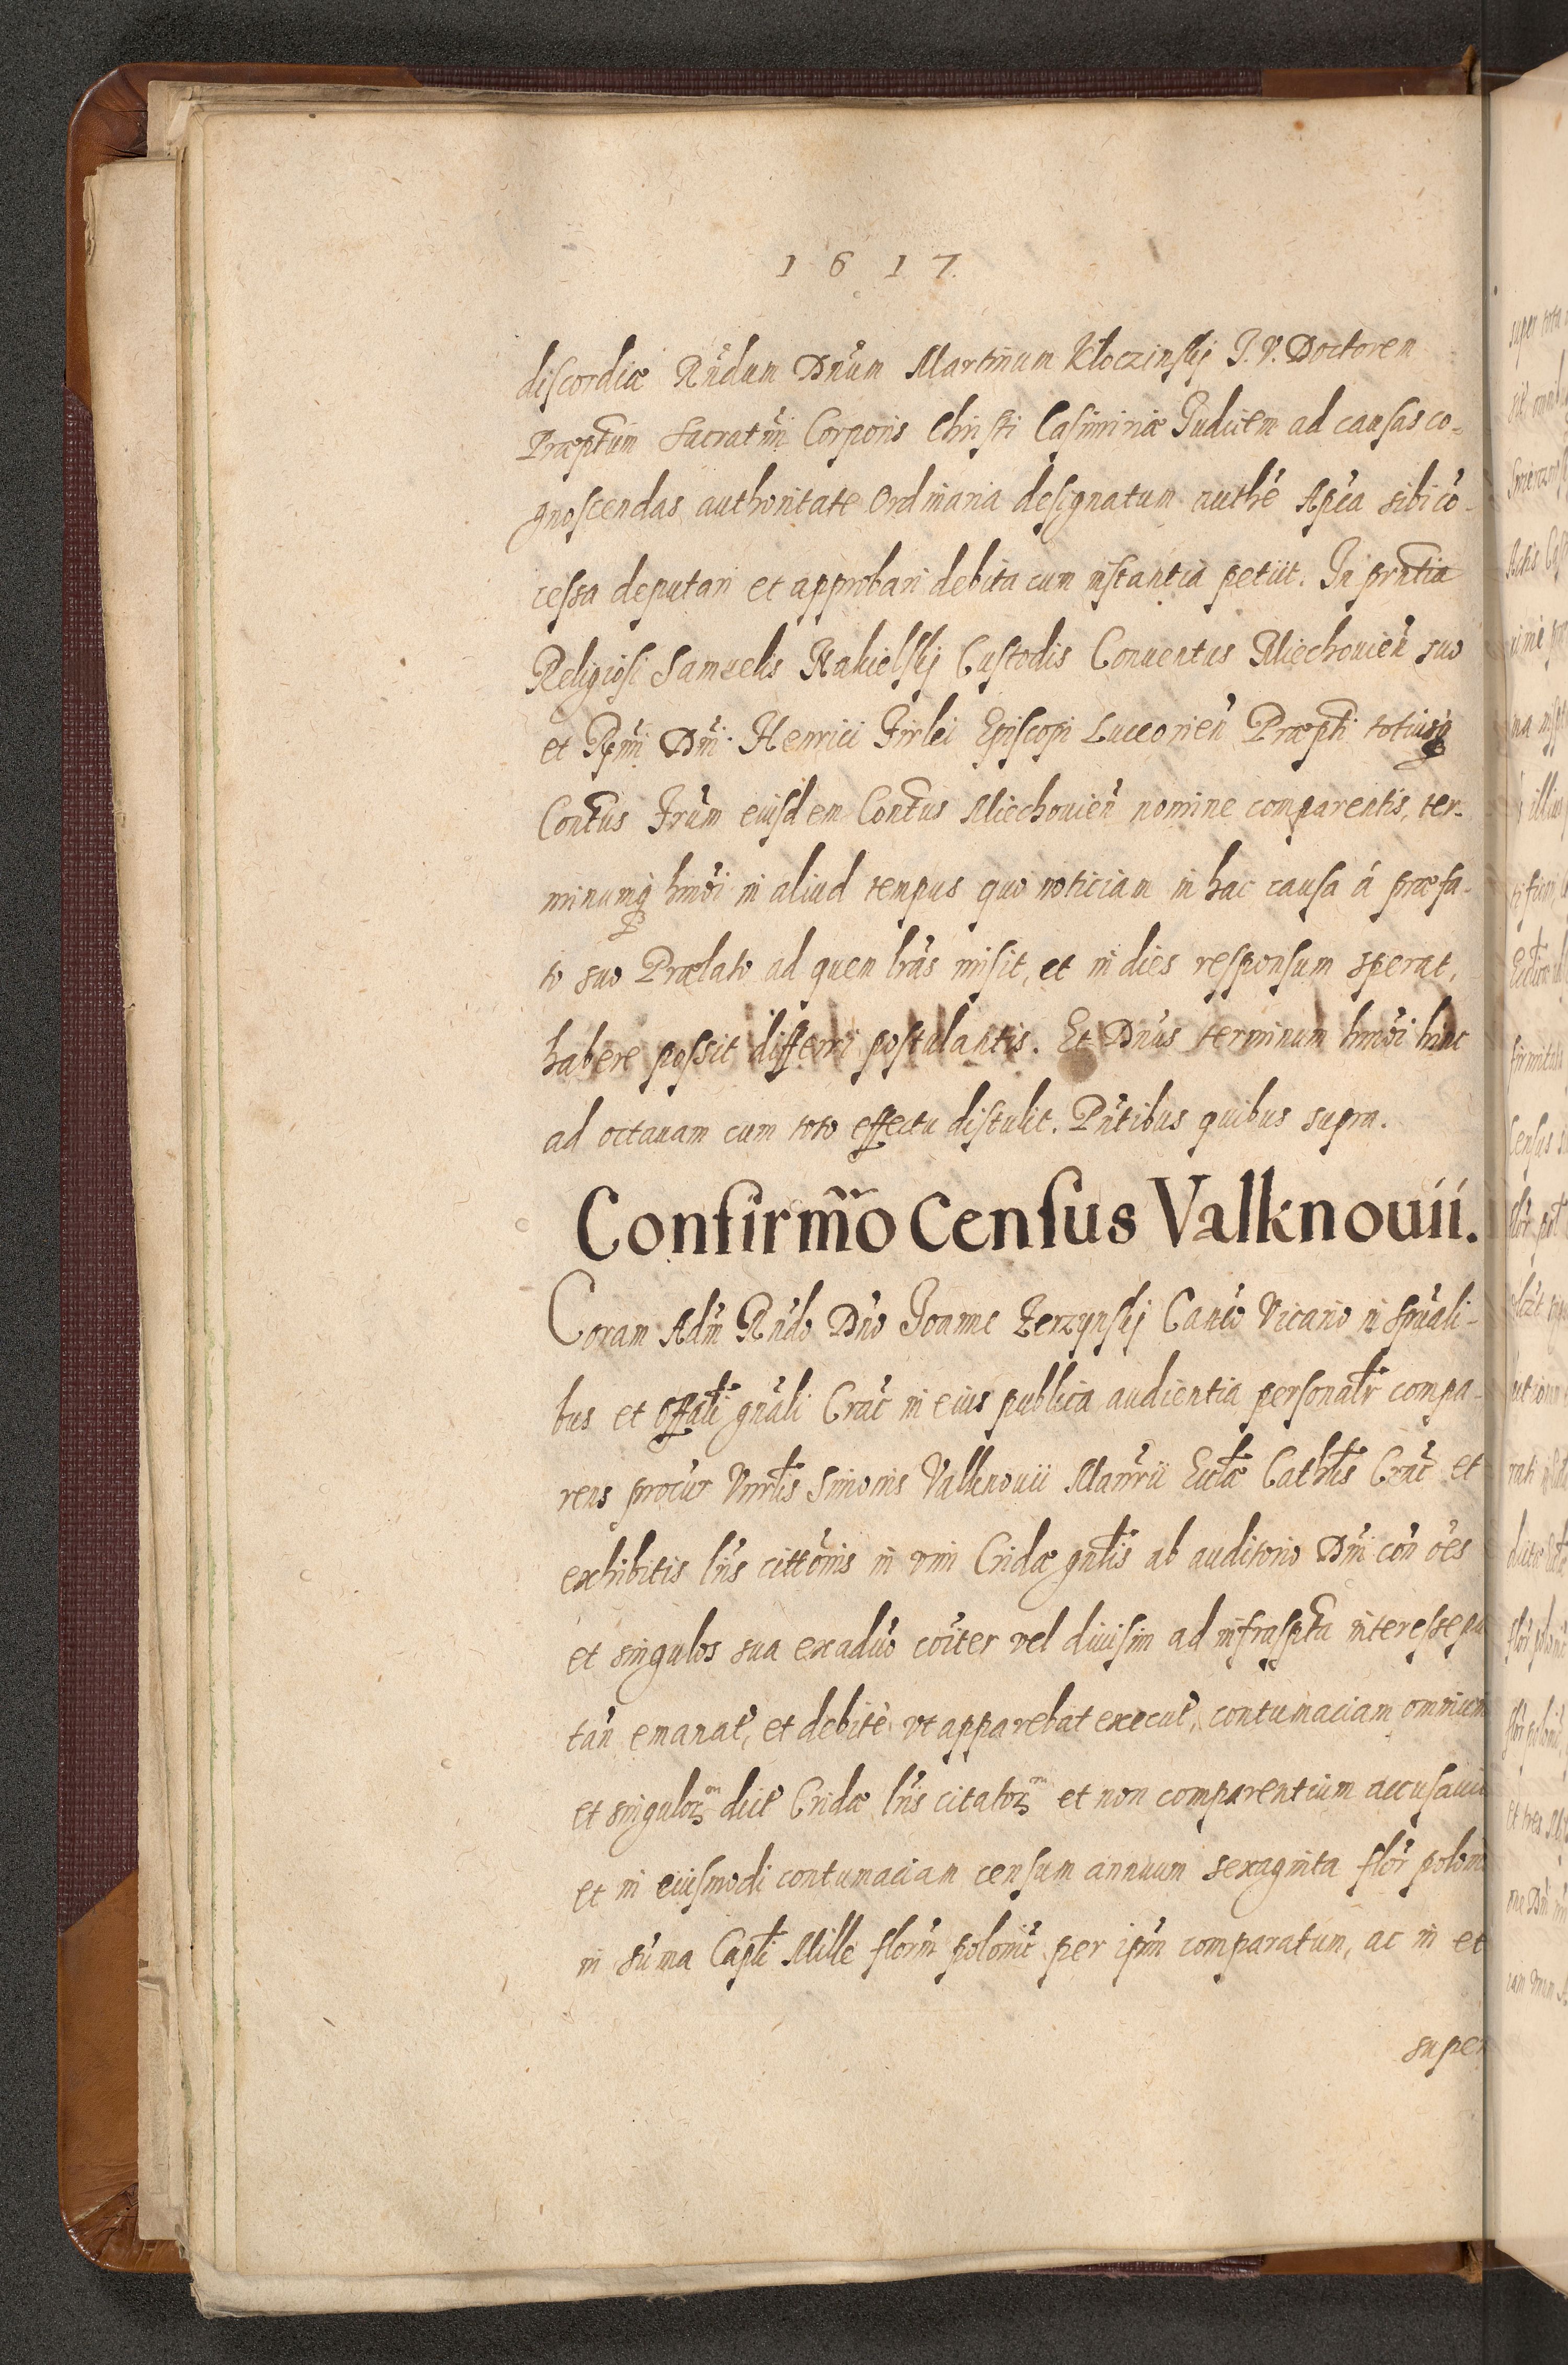 1617.
discordiæ Rñdum Dñum Martinum Kłoczinskij J. V. Doctorem
Præptum Sacratmi Corporis Christi Casimiriæ Judicem ad causas co-
gnoscendas authoritate Ordinaria designatum authe Aplca sibi co-
cessa deputari et approbari debita cum instantia petiit. In prntia
Religiosi Samuelis Nakielskij Custodis Conuentus Miechouien suo
et Rmi Dni Henrici Firlei Episcopi Luceorien Præpti totiusq
Contus Frum eiusdem Contus Miechouien nomine comparentis, ter-
minumq hmoi in aliud tempus quo noticiam in hac causa à præfa-
to suo Prælato ad quem lras misit, et in dies responsum sperat,
habere possit differri postulantis. Et Dnus terminum hmoi hinc
ad octauam cum toto effectu distulit. Pntibus quibus supra.
Confirmo Census Valknouii.
Coram Adm Rndo Dno Joanne Zerzynskij Canco Vicario in spirali-
bus et Offali gnali Crac in eius publica audientia personalr compa-
rens procur Vnrlis Simonis Valknouii Manrii Eclæ Cathlis Crac et
exhibitis lris cittonis in vim Cridæ gnlis ab auditorio Dni con oes
et singulos sua exaduo coiter vel diuisim ad infraspta interesse pu
tan emanat, et debitè vt apparebat execut, contumaciam omnium
et singulor dict Cridæ lris citator et non comparentium accusauit
et in eiusmodi contumaciam censum annuum sexaginta flor polonic
in suma Capli Mille florm polonic per ipm comparatum, ac in et
super